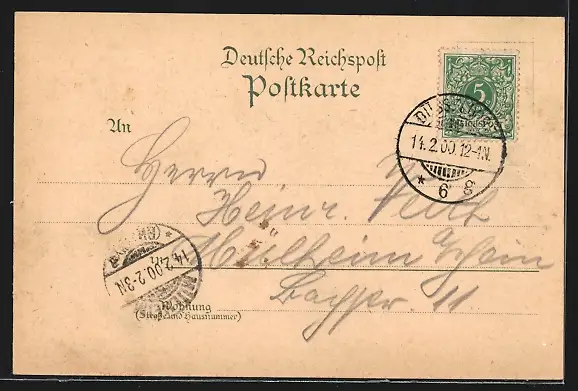 Deutsche Reichspost
Postkarte
5
An
14.2.00.12-1N.
* 6 g
Herrn
Heinr.
Mülheim Rhein
14.2.00.2-3N
11
Wohnung
(Straße und Hausnummer)